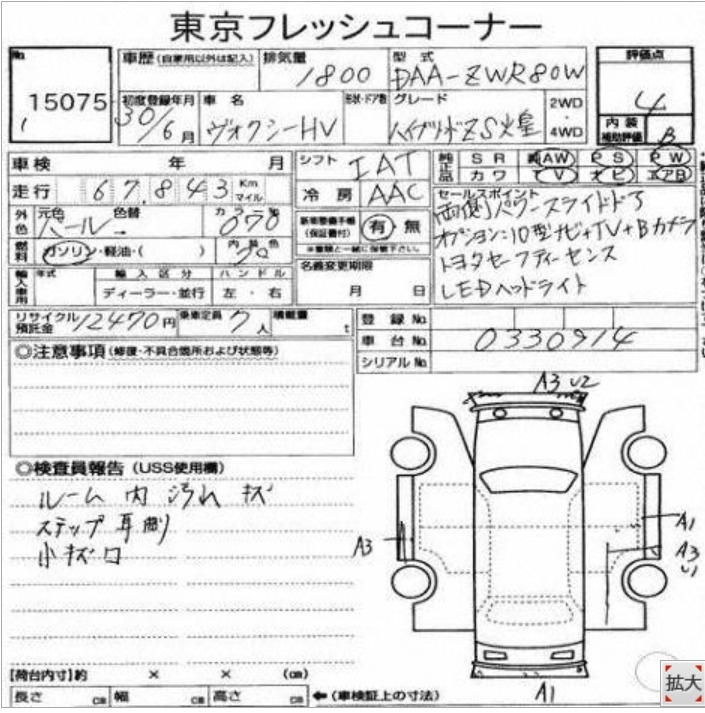 東京フレッシュコーナー
No. 15075
車歴(自家用以外は記入) 排気量 1800 型式 DAA-ZWR80W 評価点 4
初度登録年月 30/6月 車名 ヴォクシーHV 形状・ドア数 グレード ハイブリッドZS煌 2WD・4WD 内装補助評価 B
車検 年 月 シフト IAT 純正品 SR AW PS PW
カワ TV ナビ エアB
走行 67,843 Km マイル 冷房 AAC
外色 元色 パール 色替 カラーNo. 070
セールスポイント
両側パワースライドドア
オプション:10型ナビ+TV+Bカメラ
トヨタセーフティーセンス
LEDヘッドライト
燃料 ガソリン・軽油・( ) 内装色
新車整備手帳(保証書付) 有・無
※車検と一緒に保管下さい。
輸入車用 年式 輸入区分 ハンドル
ディーラー・並行 左・右
名義変更期限 月 日
リサイクル預託金 12470円 乗車定員 7人 積載量 t
登録No.
車台No. 0330914
シリアルNo.
◎注意事項(修復・不具合箇所および状態等)
◎検査員報告(USS使用欄)
ルーム内汚れキズ
ステップ耳削
小キズ凹
A3 U2
A3
A1
A3
U1
A1
【荷台内寸】約 × × (cm)
長さ cm 幅 cm 高さ cm ←(車検証上の寸法)
拡大